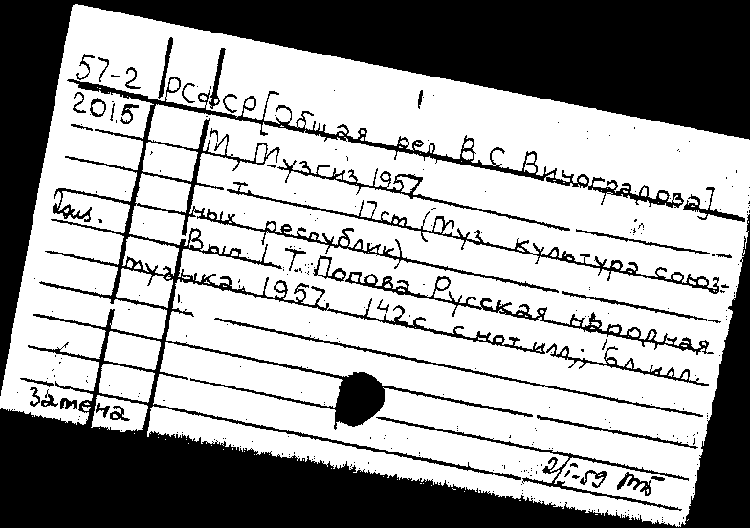 57-2
2015
РСФСР [Общая ред. В.С. Виноградова]
М., Музгиз, 1957
т. 17см (Муз. культура союз-
ных республик)
Вып. 1. Т. Попова Русская народная
музыка. 1957. 142 с. с нот. илл.; 6 л. илл.
Замена
2/I-59